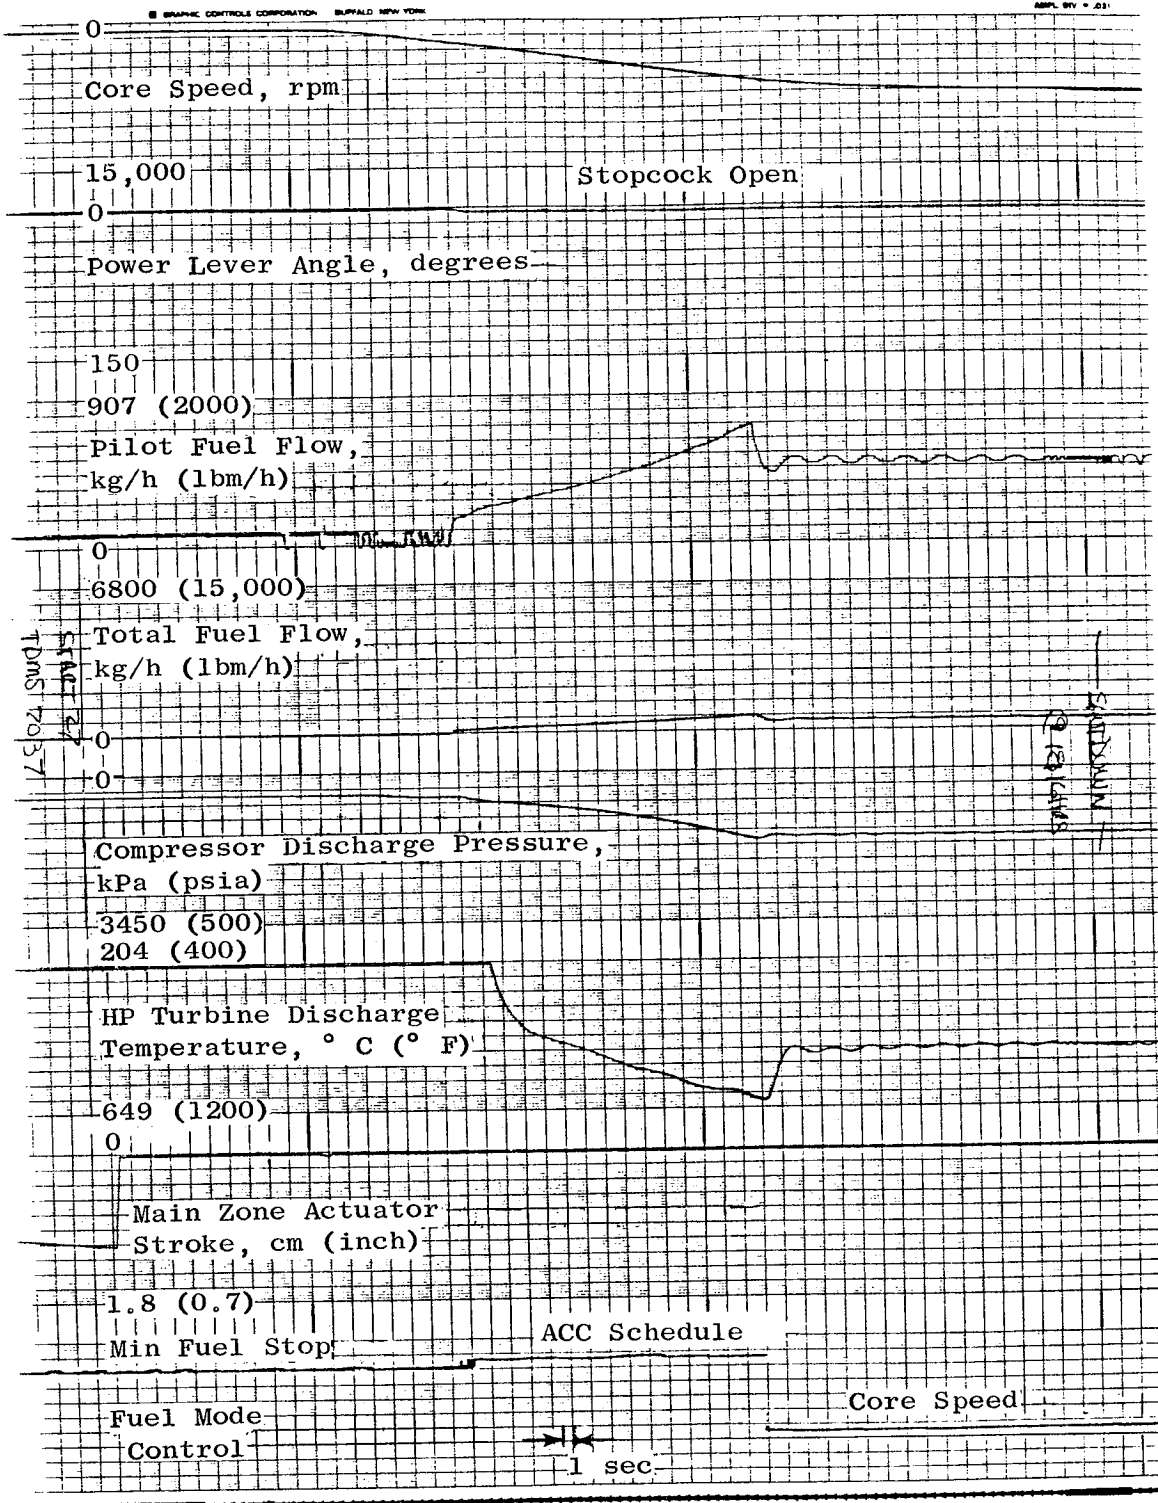 GRAPHIC CONTROLS CORPORATION BUFFALO NEW YORK
0
Core Speed, rpm
15,000
Stopcock Open
0
Power Lever Angle, degrees
150
907 (2000)
Pilot Fuel Flow,
kg/h (lbm/h)
0
6800 (15,000)
Total Fuel Flow,
kg/h (lbm/h)
START 27
TDMS 7037
0
0
Compressor Discharge Pressure,
kPa (psia)
3450 (500)
204 (400)
HP Turbine Discharge
Temperature, ° C (° F)
649 (1200)
0
Main Zone Actuator
Stroke, cm (inch)
1.8 (0.7)
Min Fuel Stop
ACC Schedule
Core Speed
Fuel Mode
Control
1 sec